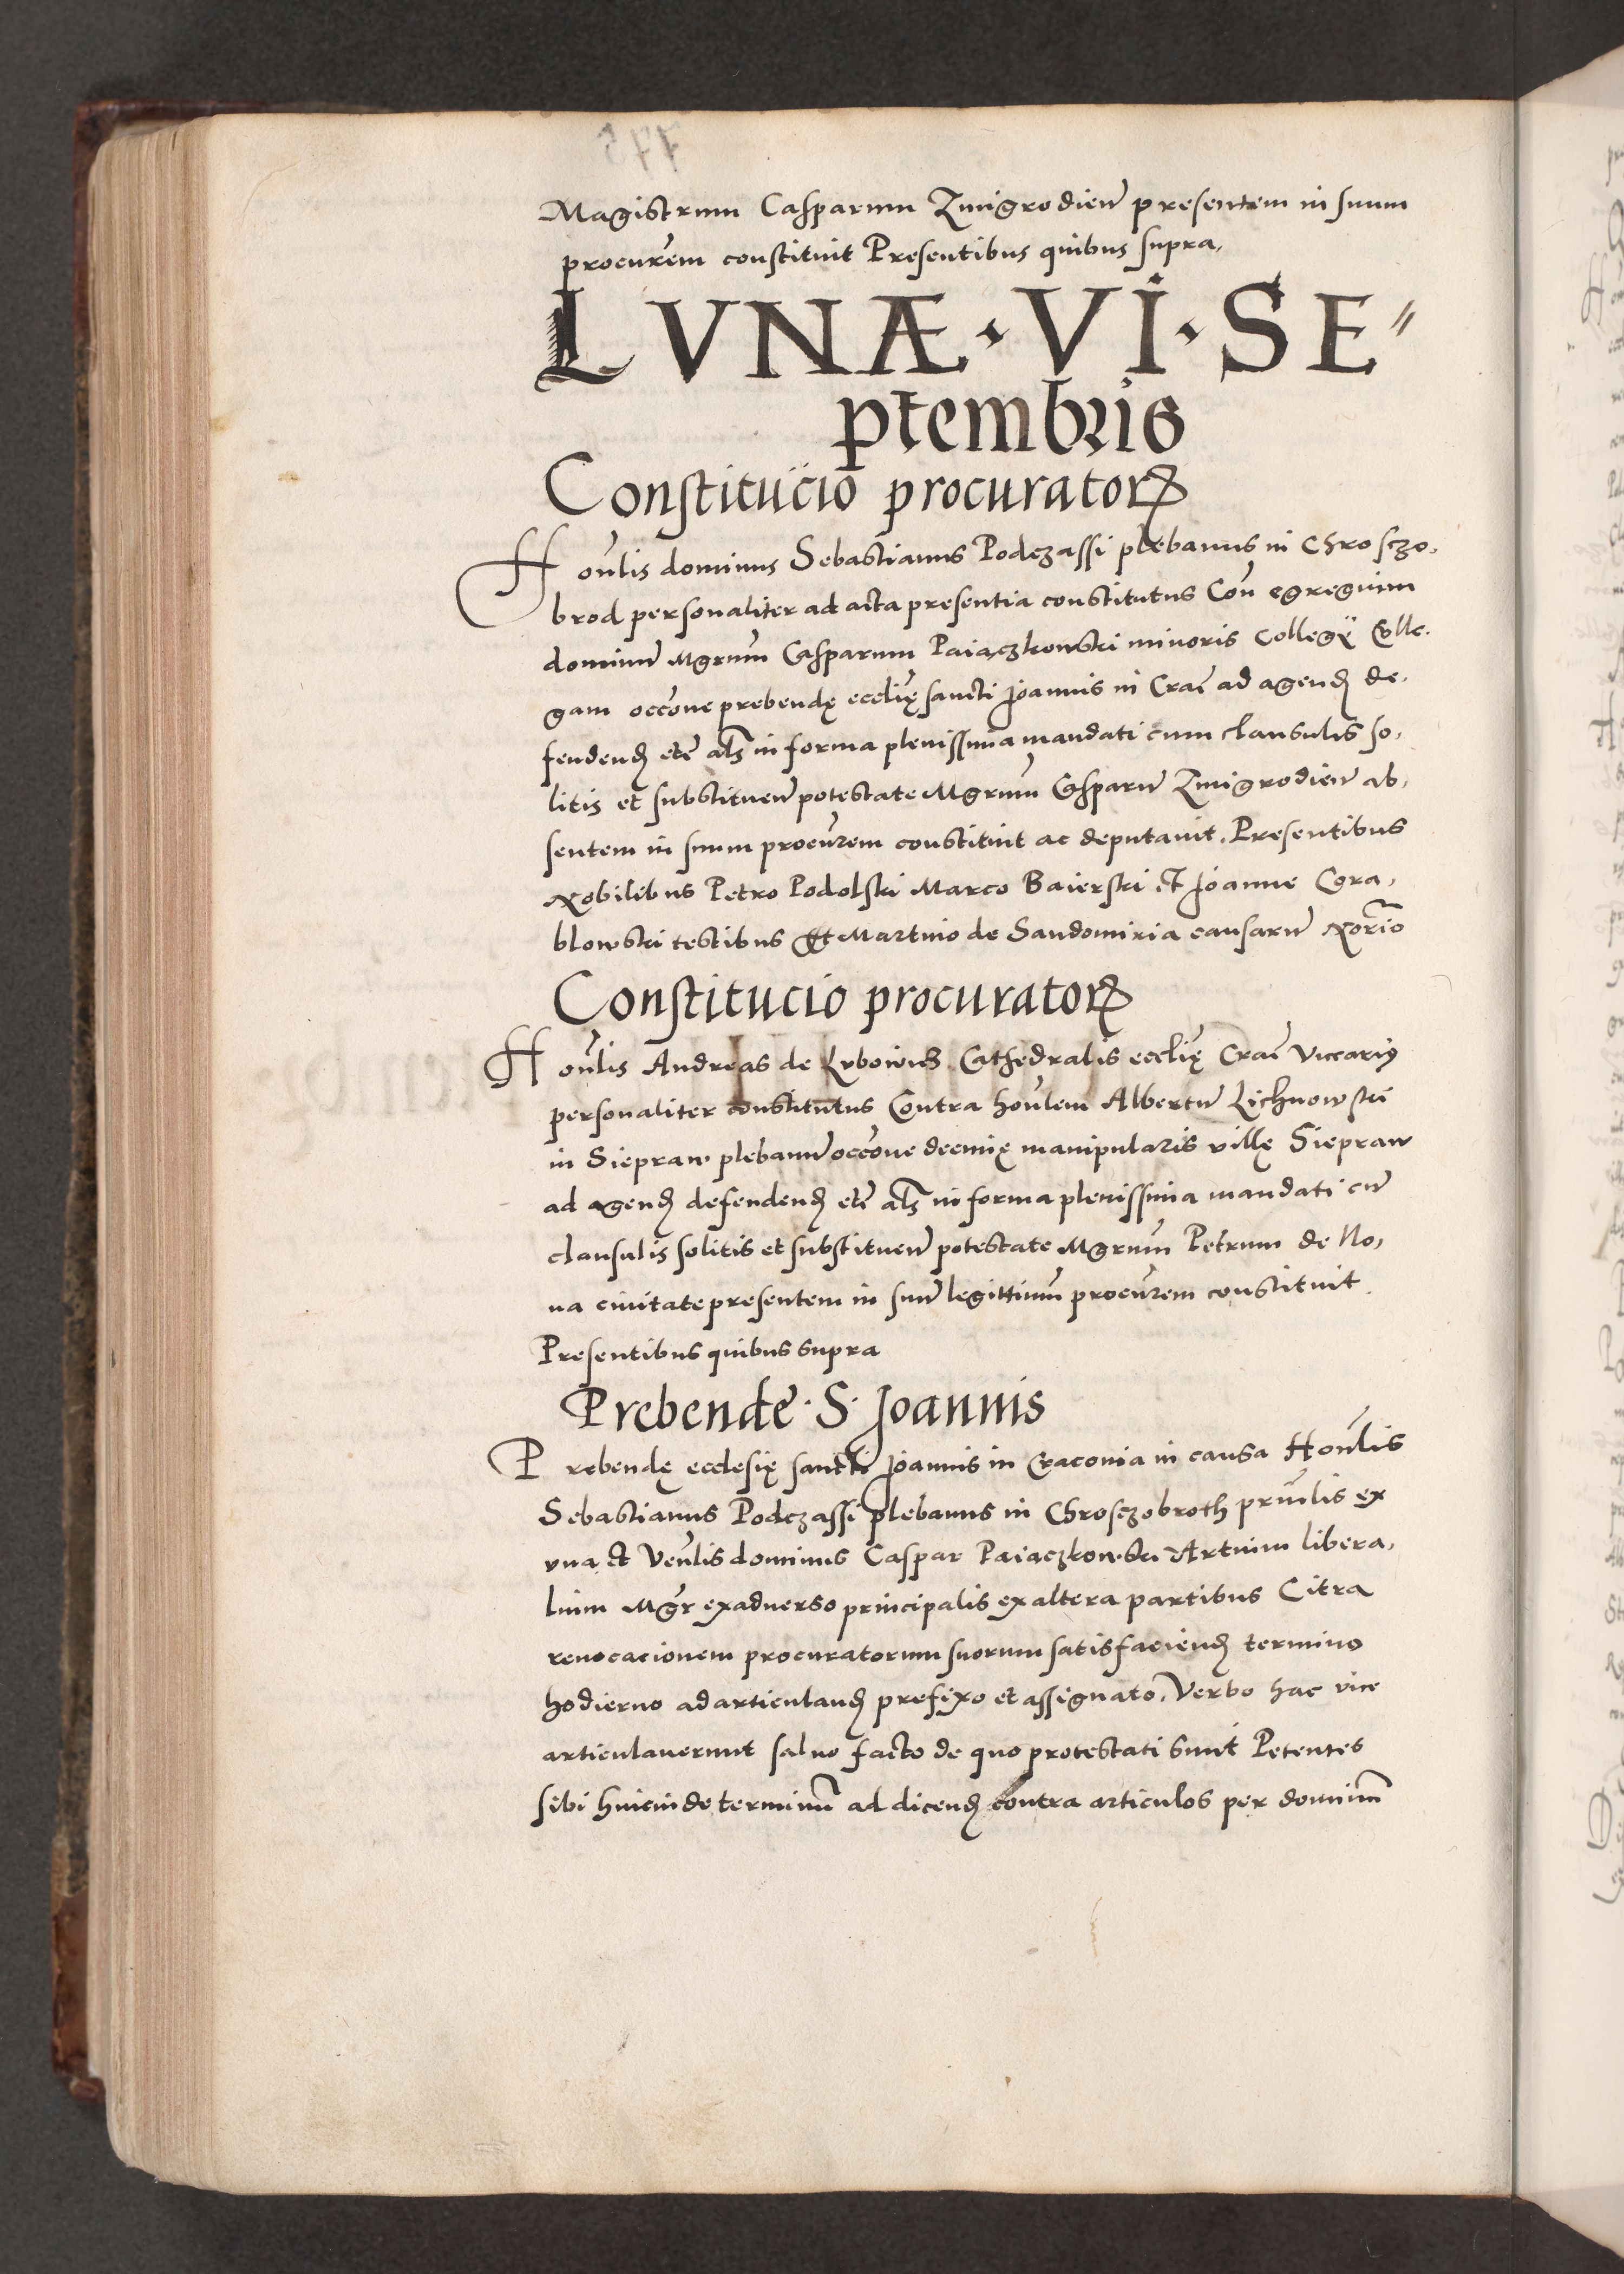 Magistrum Casparum Zmigrodien̄ presentem in suum
procurēm constituit Presentibus quibus supra,
LVNÆ · VI · SE〃
ptembris
Constitucio procuratorꝝ
Hon̄lis dominus Sebastianus Podczassi plebanus in Chrosczo,
brod personaliter ad acta presentia constitutus Con̄ egregium
dominū Mgrum̄ Casparum Paiączkowski minoris Collegÿ Colle.
gam occōne prebendę ecclię sancti Joannis in Crac̄ ad agend̄ de,
fendend̄ etc̄ al̄s in forma plenissima mandati cum clausulis so,
litis et substituen̄ potestate Mgrum̄ Casparū Zmigrodien̄ ab,
sentem in suum procurēm constituit ac deputauit. Presentibus
Nobilibus Petro Podolski Marco Baierski et Joanne Gra,
blowski testibus Et Martino de Sandomiria causarū Notr̄io
Constitucio procuratorꝝ
Hon̄lis Andreas de Lvbowicz Cathedralis ecclię Crac̄ Viccariꝯ
personaliter constitutus Contra hon̄lem Albertū Lichnowski
in Siepraw plebanū occōne decimę manipularis villę Siepraw
ad agend̄ defendend̄ etc̄ al̄s in forma plenissima mandati cū
clausulis solitis et substituen̄ potestate Mgrum̄ Petrum de No,
ua ciuitate presentem in suū legittimū procurēm constituit.
Presentibus quibus supra
Prebende · S · Joannis
Prebendę ecclesię sancti Joannis in Craconia in causa Hon̄lis
Sebastianus Podczassi plebanus in Chrosczobroth prin̄lis ex
vna et Ven̄lis dominus Caspar Paiaczkowski Artium libera,
lium Mgr̄ exaduerso principalis ex altera partibus Citra
reuocacionem procuratorum suorum satisfaciend̄ termino
hodierno ad articuland̄ prefixo et assignato, Verbo hac vice
articulauerunt saluo facto de quo protestati sunt Petentes
sibi hincinde terminū ad dicend̄ contra articulos per dominū